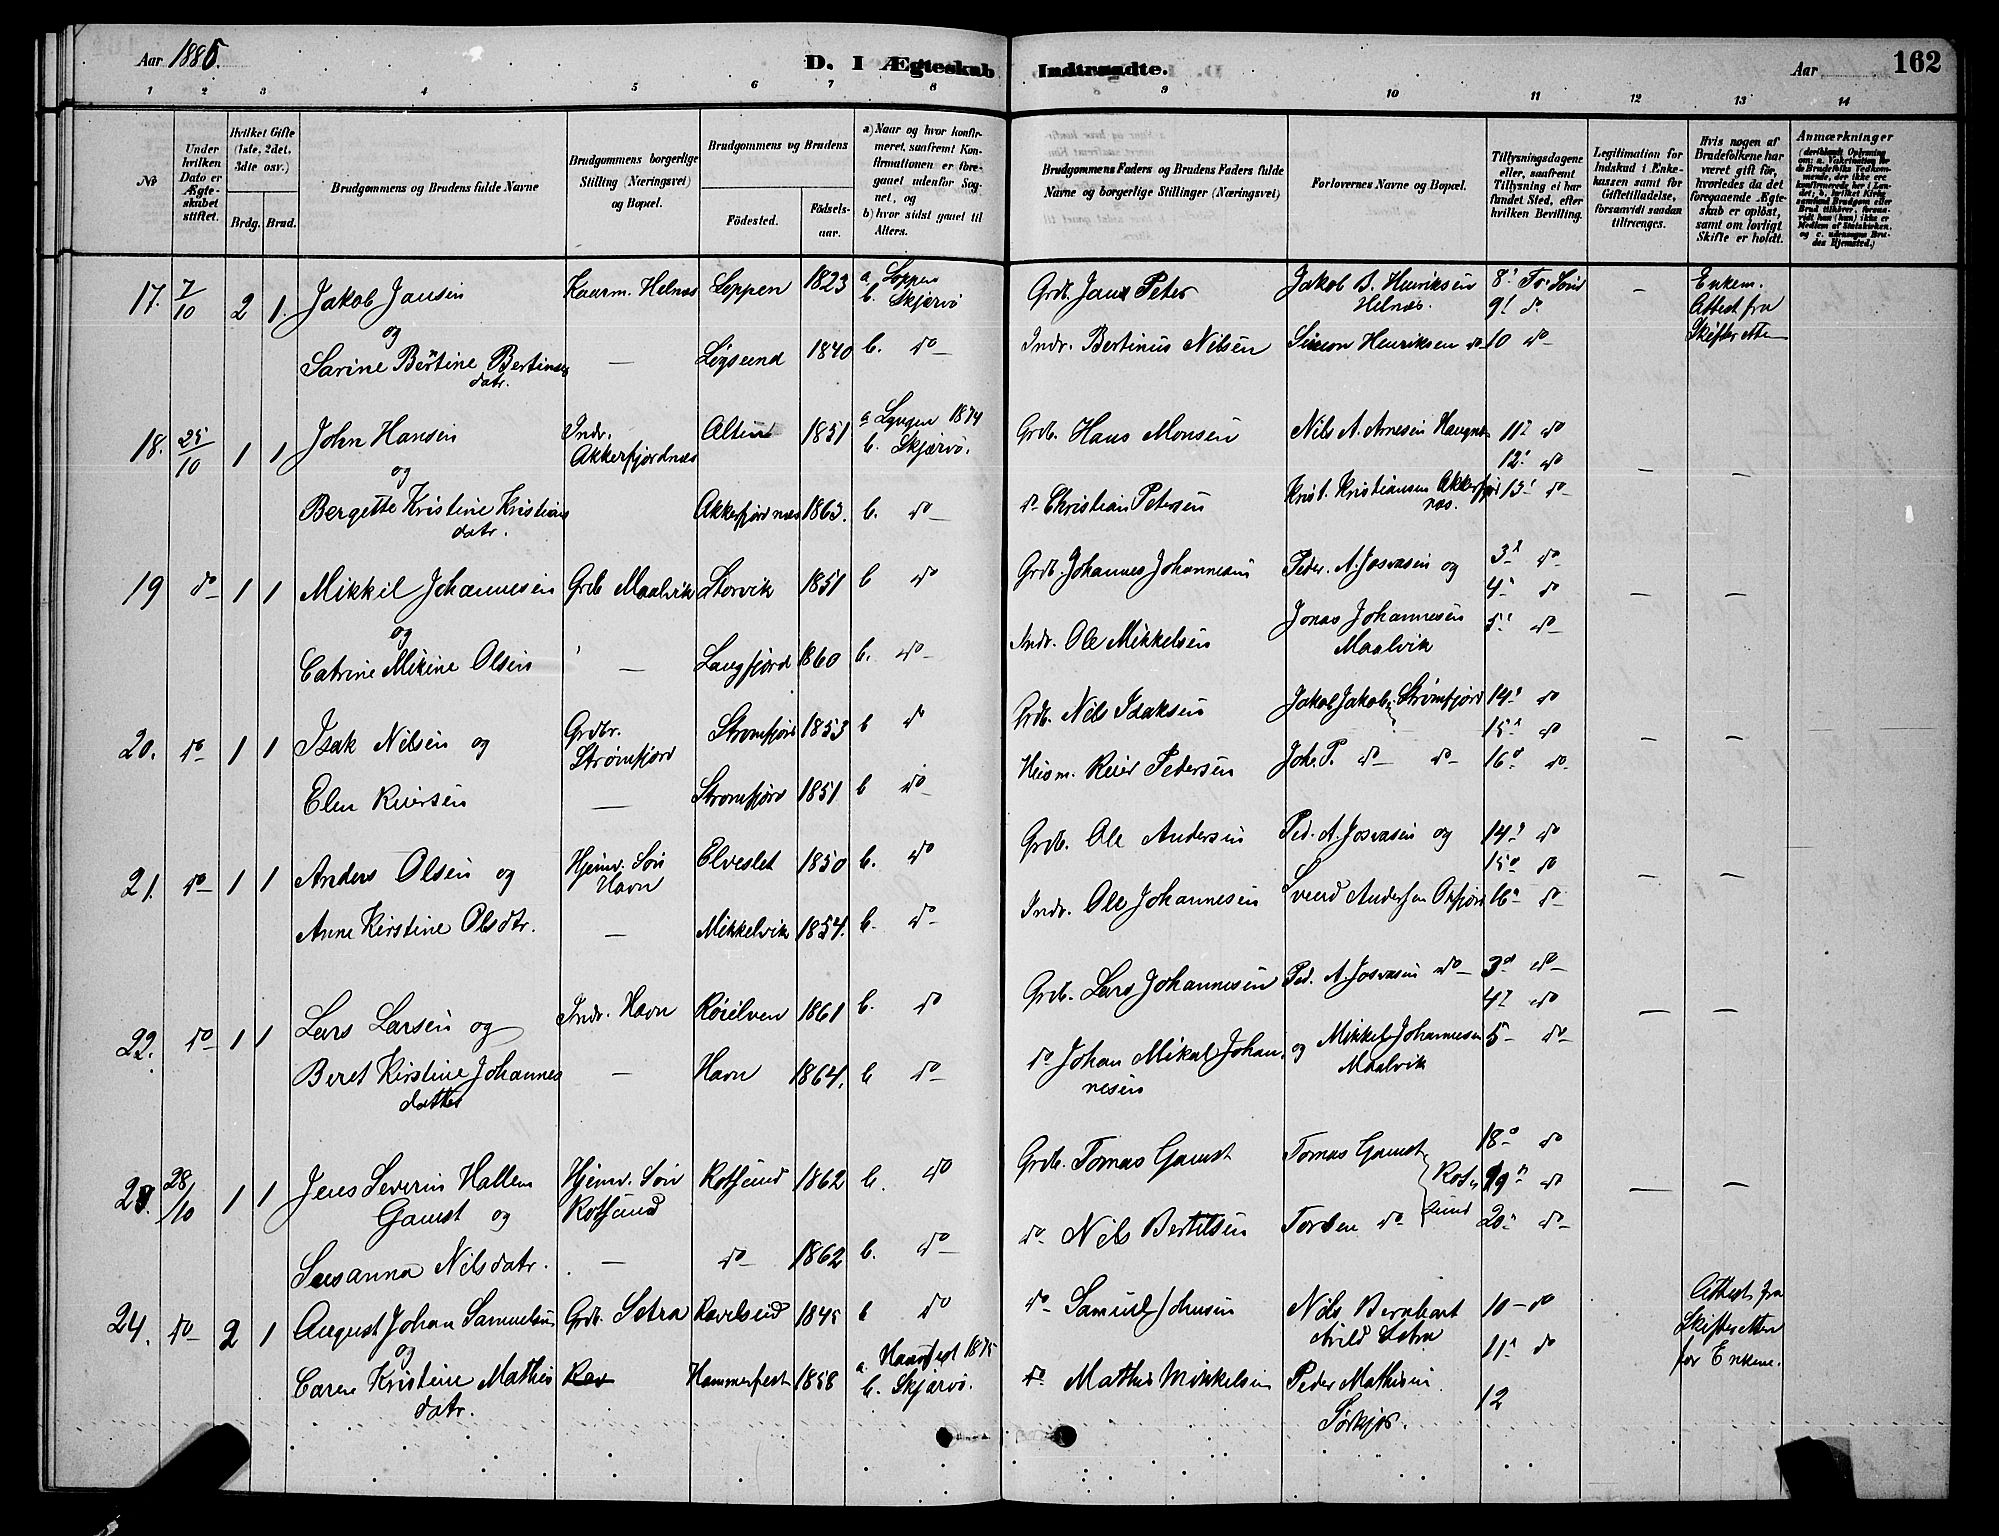 Aar 1885.
D. I Ægteskab Indtraadte.
Aar
162
1 2 3 4 5 6 7 8 9 10 11 12 13 14
No
Under hvilken Dato er Ægteskabet stiftet.
Hvilket Gifte (1ste, 2det, 3die osv.)
Brdg. Brud.
Brudgommens og Brudens fulde Navne
Brudgommens borgerlige Stilling (Næringsvei) og Bopæl.
Brudgommens og Brudens
Fødested.
Fødselsaar.
a) Naar og hvor konfirmeret, saafremt Konfirmationen er foregaaet udenfor Sognet, og
b) hvor sidst gaaet til Alters.
Brudgommens Faders og Brudens Faders fulde Navne og borgerlige Stillinger (Næringsvei)
Forlovernes Navne og Bopæl.
Tillysningsdagene eller, saafremt Tillysning ei har fundet Sted, efter hvilken Bevilling.
Legitimation for Indskud i Enkekassen samt for Giftetilladelse, forsaavidt saadan tiltrænges.
Hvis nogen af Brudefolkene har været gift før, hvorledes da det foregaaende Ægteskab er opløst, samt om lovligt Skifte er holdt.
Anmærkninger
17. 7/10 2 1. Jakob Jansen Kaarm. Helnæs Loppen 1823 a Loppen b. Skjærvø Grdb. Jans Peter Jakob B. Henriksen Helnæs 8 9 do — Enkem. Attest fra Skifteretten
og
Sarine Bertine Bertinsdatr. — Logsund 1840 b. do Indr. Bertinus Nilsen Simon Henriksen do 10 do
18. 25/10 1 1 John Hansen Indr. Akkerfjordnæs Alten 1851 a Lyngen 1874 b. Skjærvø. Grdb. Hans Monsen Nils A. Arnesen 11 do 12 do — —
og
Bergette Kristine Kristiansdatr. Akkerfjordnæs 1863. b. do do Christian Petersen Krist. Kristiansen Akkerfjordnæs. 13 do
19 do 1 1 Mikkil Johannesen Grdb Maalvik Storvik 1851 b do Grdb. Johannes Johannesen Peder. A. Josvasen og 3 do 4 do — —
og
Catrine Mikine Olsen — Langfjord 1860 b. do Indr. Ole Mikkelsen Jonas Johannesen Maalvik 5 do
20. do 1 1 Isak Nilsen og Grdbr. Strømfjord Strømfjord 1853 b do Grdb. Nils Isaksen Jakob Jakobs. Strømfjord 14 do 15 do — —
Elen Reiersen — Strømfjord 1851 b do Husm. Reier Pedersen Joh. P. do do 16 do
21. do 1 1 Anders Olsen og Hjemv. Søn Havn Elveslet 1850 b. do Grdb. Ole Andersen Ped. A. Josvasen og 14 do 15 do — —
Anne Kirstine Olsdtr. — Mikkelvik 1854. b. do Indr. Ole Johannesen Svend Andersen Oxfjord 16 do
22. do 1 1 Lars Larsen og Indr. Havn Røielven 1861 b. do Grdb. Lars Johannesen Ped. A. Josvasen do 3 do 4 do — —
Beret Kirstine Johannesdatter — Havn 1864. b do do Johan Mikal Johannesen og Mikkel Johannesen Maalvik 5 do
23. 28/10 1 1 Jens Severin Hallem Gamst og Hjemv. Søn Rotsund Rotsund 1862 b. do Grdb. Tomas Gamst Tomas Gamst Rotsund 18 do 19 do — —
Susanna Nilsdatr. — do 1862 b. do do Nils Bertilsen Torben do 20 do
24. do 2 1 August Johan Samuelsen Grdb. Sotra Ravelseid 1845 b do do Samuel Johnsen Nils Bernhart Sotra 10 do 11 do Attest fra Skifteretten for Enkem.
og
Caren Kristine Mathisdatr. Rav Hammerfest 1858 a. Hamfest 1875 b. Skjærvø. do Mathis Mikkelsen Peder Mathisen Sørkjos. 12